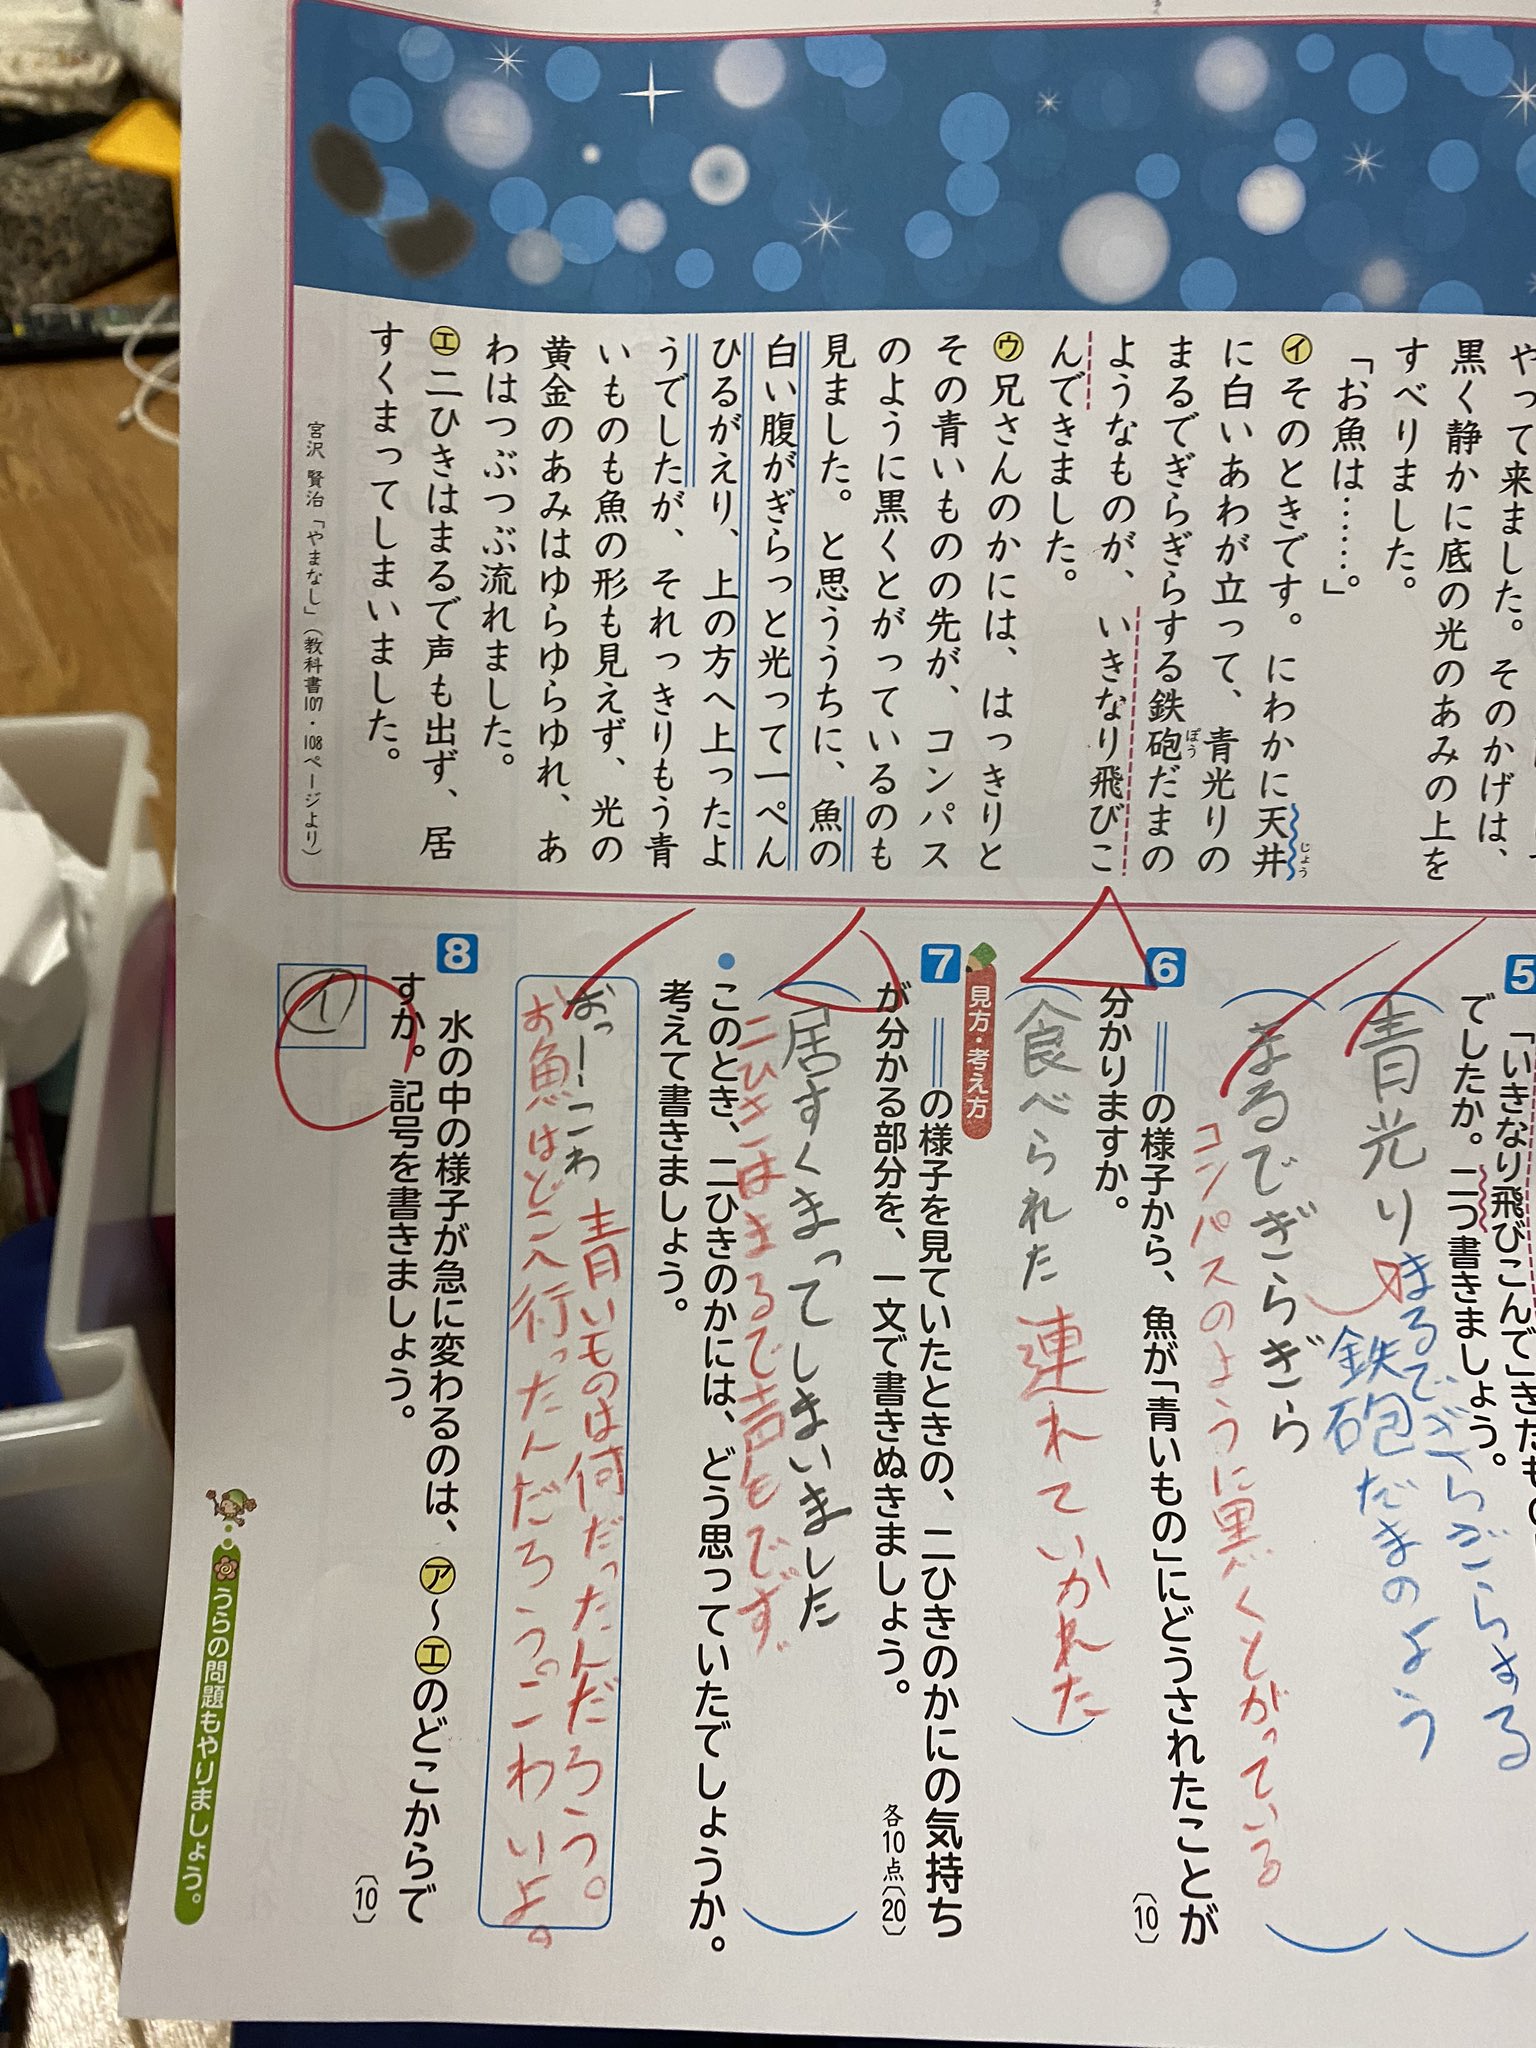 やって来ました。そのかげは、
黒く静かに底の光のあみの上を
すべりました。
「お魚は……。」
イ そのときです。にわかに天井
じょう
に白いあわが立って、青光りの
まるでぎらぎらする鉄砲だまの
ぽう
ようなものが、いきなり飛びこ
んできました。
ウ 兄さんのかには、はっきりと
その青いものの先が、コンパス
のように黒くとがっているのも
見ました。と思ううちに、魚の
白い腹がぎらっと光って一ぺん
ひるがえり、上の方へ上ったよ
うでしたが、それっきりもう青
いものも魚の形も見えず、光の
黄金のあみはゆらゆらゆれ、あ
わはつぶつぶ流れました。
エ 二ひきはまるで声も出ず、居
すくまってしまいました。
宮沢 賢治「やまなし」(教科書107・108ページより)
5 「いきなり飛びこんで」きたもの
でしたか。二つ書きましょう。
まるでぎらぎらする
青光り
鉄砲だまのよう
まるでぎらぎら
コンパスのように黒くとがっている
6 の様子から、魚が「青いもの」にどうされたことが
分かりますか。
(10)
食べられた 連れていかれた
見方・考え方
7 の様子を見ていたときの、二ひきのかにの気持ち
が分かる部分を、一文で書きぬきましょう。
各10点(20)
居すくまってしまいました
二ひきはまるで声もでず
・このとき、二ひきのかには、どう思っていたでしょうか。
考えて書きましょう。
おっー、こわ 青いものは何だったんだろう。
お魚はどこへ行ったんだろう。こわいよ。
8 水の中の様子が急に変わるのは、ア〜エのどこからで
すか。記号を書きましょう。
(10)
イ
うらの問題もやりましょう。